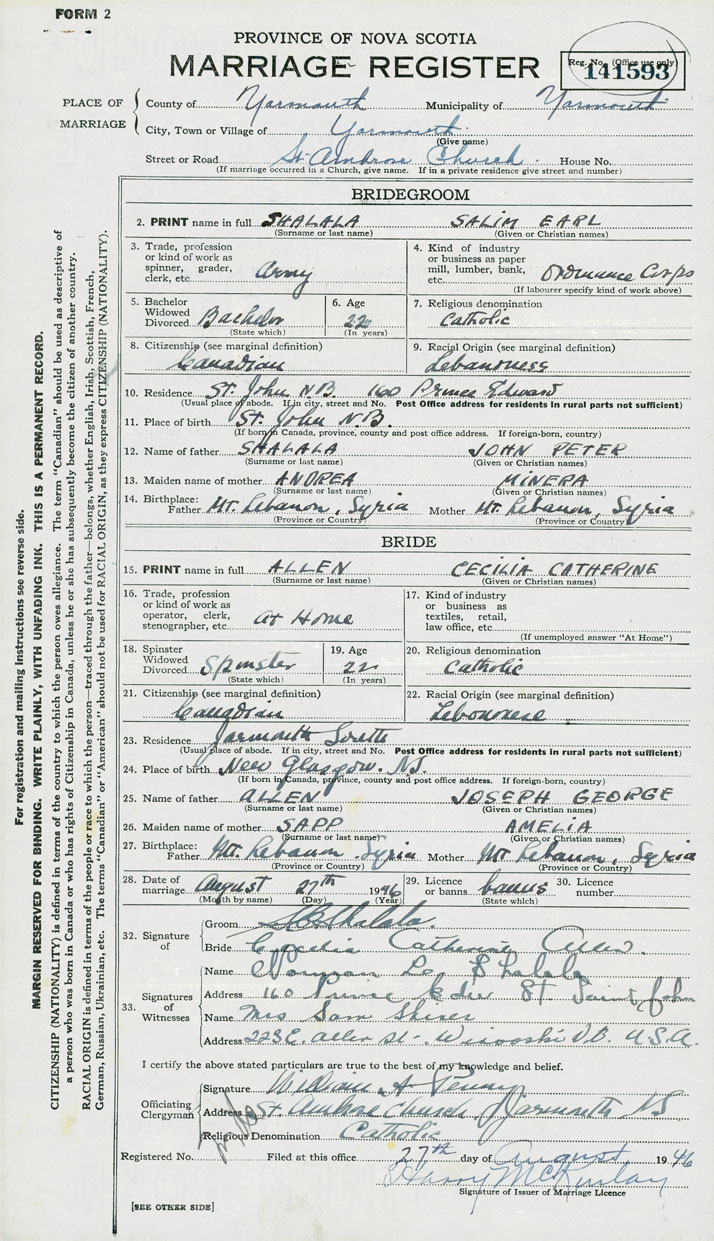 FORM 2
PROVINCE OF NOVA SCOTIA
MARRIAGE REGISTER
Reg. No. (Office use only)
141593
PLACE OF MARRIAGE
County of Yarmouth Municipality of Yarmouth
City, Town or Village of Yarmouth
(Give name)
Street or Road St. Ambrose Church House No.
(If marriage occurred in a Church, give name. If in a private residence give street and number)
BRIDEGROOM
2. PRINT name in full SHALALA SALIM EARL
(Surname or last name) (Given or Christian names)
3. Trade, profession or kind of work as spinner, grader, clerk, etc. Army
4. Kind of industry or business as paper mill, lumber, bank, etc. Ordnance Corps
(If labourer specify kind of work above)
5. Bachelor Widowed Divorced Bachelor
(State which)
6. Age 22
(In years)
7. Religious denomination
Catholic
8. Citizenship (see marginal definition)
Canadian
9. Racial Origin (see marginal definition)
Lebanonese
10. Residence St. John N.B. 160 Prince Edward
(Usual place of abode. If in city, street and No. Post Office address for residents in rural parts not sufficient)
11. Place of birth St. John N.B.
(If born in Canada, province, county and post office address. If foreign-born, country)
12. Name of father SHALALA JOHN PETER
(Surname or last name) (Given or Christian names)
13. Maiden name of mother ANDREA MINERA
(Surname or last name) (Given or Christian names)
14. Birthplace: Father Mt. Lebanon, Syria Mother Mt. Lebanon, Syria
(Province or Country) (Province or Country)
BRIDE
15. PRINT name in full ALLEN CECILIA CATHERINE
(Surname or last name) (Given or Christian names)
16. Trade, profession or kind of work as operator, clerk, stenographer, etc. At Home
17. Kind of industry or business as textiles, retail, law office, etc.
(If unemployed answer "At Home")
18. Spinster Widowed Divorced Spinster
(State which)
19. Age 22
(In years)
20. Religious denomination
Catholic
21. Citizenship (see marginal definition)
Canadian
22. Racial Origin (see marginal definition)
Lebononese
23. Residence Yarmouth
(Usual place of abode. If in city, street and No. Post Office address for residents in rural parts not sufficient)
24. Place of birth New Glasgow. N.S.
(If born in Canada, province, county and post office address. If foreign-born, country)
25. Name of father ALLEN JOSEPH GEORGE
(Surname or last name) (Given or Christian names)
26. Maiden name of mother SAPP AMELIA
(Surname or last name) (Given or Christian names)
27. Birthplace: Father Mt. Lebanon, Syria Mother Mt. Lebanon, Syria
(Province or Country) (Province or Country)
28. Date of marriage August 27th 1946
(Month by name) (Day) (Year)
29. Licence or banns banns
(State which)
30. Licence number
32. Signature of
Groom S. E. Shalala
Bride Cecelia Catherine Allen.
33. Signatures of Witnesses
Name Norman Shalala
Address 160 Prince Edw St. Saint John
Name Mrs Sam
Address 223 E. Allen St. Winooski U.S.A.
I certify the above stated particulars are true to the best of my knowledge and belief.
Officiating Clergyman
Signature William A. Penny
Address St. Ambrose Church Yarmouth NS
Religious Denomination Catholic
Registered No. Filed at this office 27th day of August 1946
Harry McKinlay
Signature of Issuer of Marriage Licence
[SEE OTHER SIDE]
For registration and mailing instructions see reverse side.
MARGIN RESERVED FOR BINDING. WRITE PLAINLY, WITH UNFADING INK. THIS IS A PERMANENT RECORD.
CITIZENSHIP (NATIONALITY) is defined in terms of the country to which the person owes allegiance. The term "Canadian" should be used as descriptive of
a person who was born in Canada or who has rights of Citizenship in Canada, unless he or she has subsequently become the citizen of another country.
RACIAL ORIGIN is defined in terms of the people or race to which the person—traced through the father—belongs, whether English, Irish, Scottish, French,
German, Russian, Ukrainian, etc. The terms "Canadian" or "American" should not be used for RACIAL ORIGIN, as they express CITIZENSHIP (NATIONALITY).